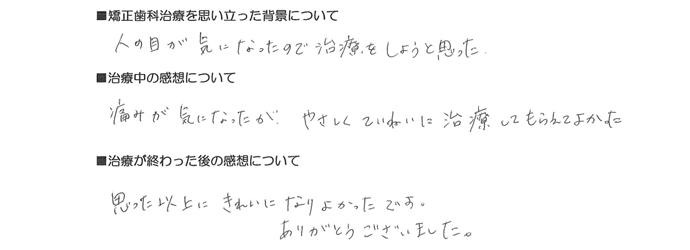 ■矯正歯科治療を思い立った背景について
人の目が気になったので治療をしようと思った.
■治療中の感想について
痛みが気になったが. やさしくていねいに治療してもらえてよかった
■治療が終わった後の感想について
思った以上にきれいになりよかったです。
ありがとうございました。